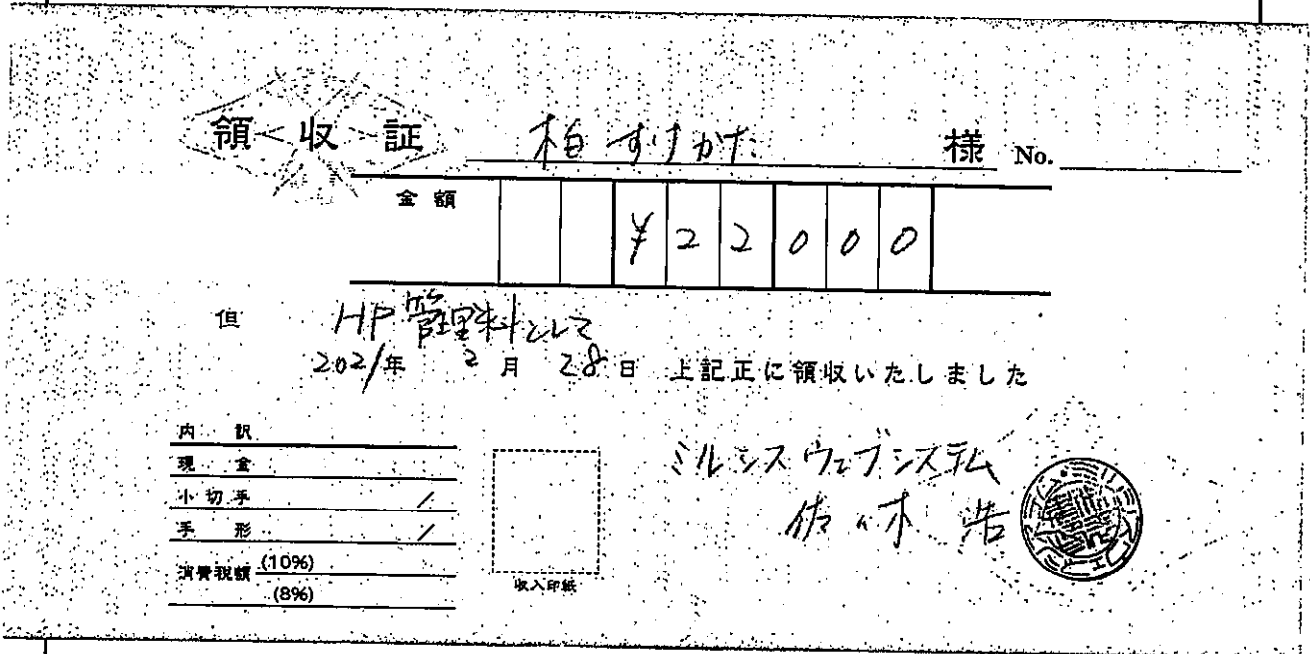 領収証 柏 すけかた 様 No.
金額 ¥22000
但 HP管理料として
2021年 2月 28日 上記正に領収いたしました
内訳
現金
小切手 /
手形 /
消費税額 (10%)
(8%)
収入印紙
ミルシスウェブシステム
佐々木 浩